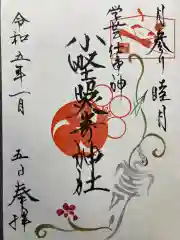 月参り 睦月
学芸仕事神
小野照崎神社
令和五年一月
五日奉拝